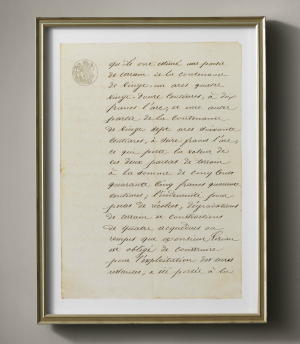 qu'ils ont estimé une partie
de terrain de la contenance
de vingt-un ares quatre
vingt-douze centiares, à dix
francs l'are, et une autre
partie de la contenance
de vingt sept ares soixante
centiares, à douze francs l'are,
ce qui porte la valeur de
ces deux parties de terrain
à la somme de cinq cents
quarante cinq francs quarante
centimes; l'indemnité pour
pertes de récoltes, dégradations
de terrain et constructions
de quatre aqueducs ou
rempes que monsieur
est obligé de construire
pour l'exploitation des terres
restantes, a été portée à la